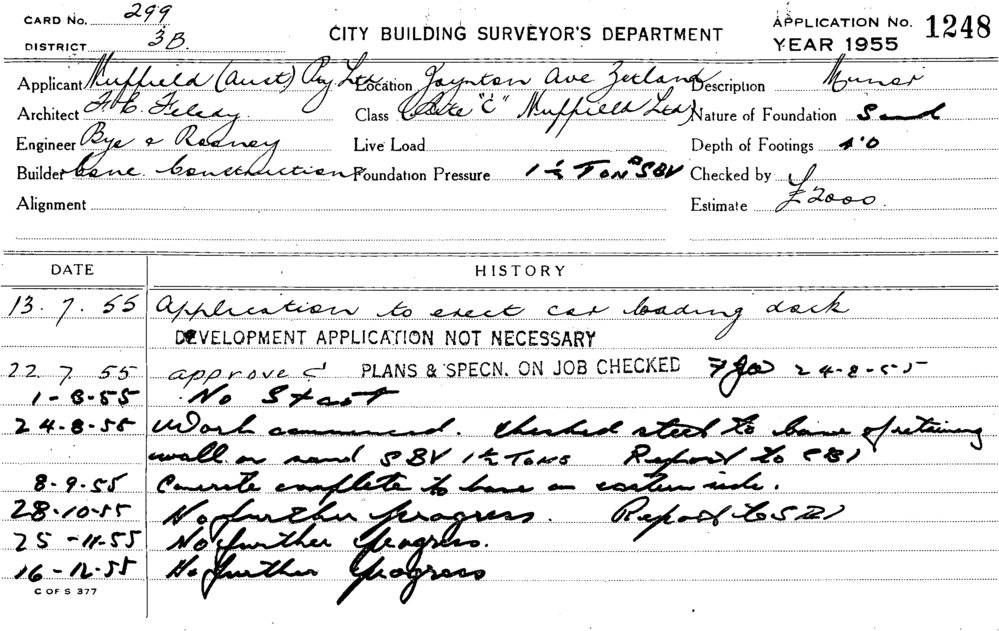 CARD No. 299
DISTRICT 3B.
CITY BUILDING SURVEYOR'S DEPARTMENT
APPLICATION No. 1248
YEAR 1955
Applicant Nuffield (Aust) Pty Ltd Location Joynton Ave Zetland Description Minor
Architect Class (Site "C" Nuffield Ltd) Nature of Foundation Sand
Engineer Bye & Live Load Depth of Footings 4'0
Builder Cone Constructions Foundation Pressure 1½ Tons SBV Checked by
Alignment Estimate £2000.
DATE HISTORY
13.7.55 Application to erect car loading dock
DEVELOPMENT APPLICATION NOT NECESSARY
22 7 55 approved PLANS & SPECN. ON JOB CHECKED 24-8-55
1-8-55 No Start
24-8-55 Work commenced. Checked steel to base of retaining
wall on sand SBV 1½ Tons Report to CBI
8-9-55 Concrete complete to base on eastern side.
28-10-55 No further progress. Report to
25-11-55 No further progress.
16-12-55 No further progress
C OF S 377